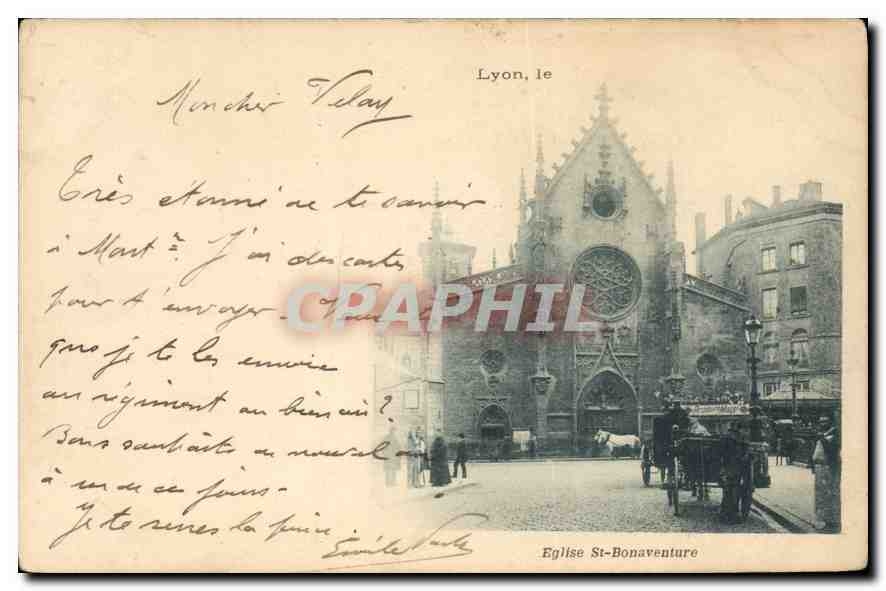 Lyon, le
Mon cher Velay
Très étonné de te savoir
à Mont
J'ai des cartes
pour t'envoyer. Veux-tu
que je te les envoie
au régiment ou bien ici ?
Bons souhaits de nouvel an
à un de ces jours.
Je te serres la pince.
Emile
CPAPHIL
Eglise St-Bonaventure